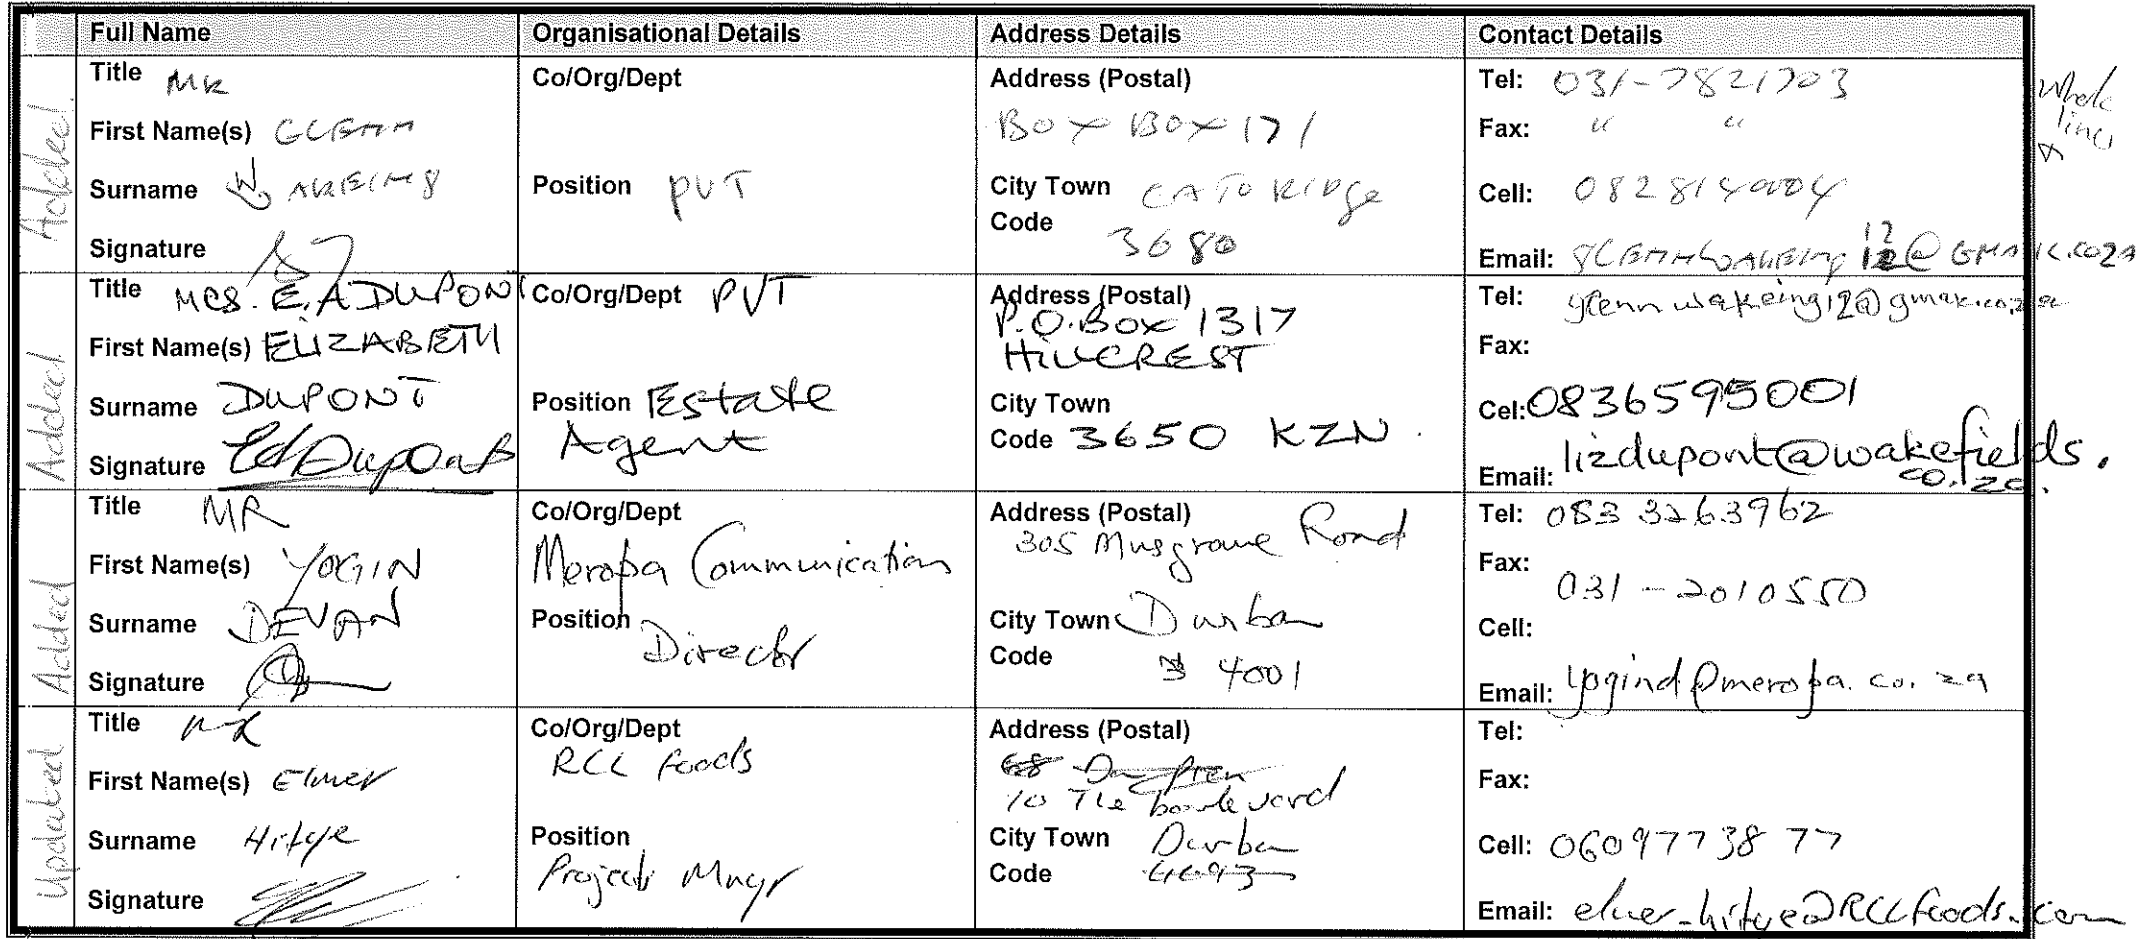 Full Name Organisational Details Address Details Contact Details
Added
Title MR
First Name(s) GLENN
Surname WAKEING
Signature
Co/Org/Dept
Position PVT
Address (Postal)
BOX BOX 171
City Town CATO RIDGE
Code
3680
Tel: 031-7821703
Fax: " "
Cell:
Email: 12 12@GMAIL.COZA
Added
Title MRS. E.A DUPONT
First Name(s) ELIZABETH
Surname DUPONT
Signature EADupont
Co/Org/Dept PVT
Position Estate
Agent
Address (Postal)
P.O.Box 1317
HILLCREST
City Town
Code 3650 KZN.
Tel: glennwakeing12@gmail.co.za
Fax:
Cel: 0836595001
lizdupont@wakefields.
Email: co.za.
Added
Title MR
First Name(s) YOGIN
Surname DEVAN
Signature
Co/Org/Dept
Meropa Communication
Position
Director
Address (Postal)
305 Musgrave Road
City Town Durban
Code 4001
Tel: 083 3263962
Fax:
031-2010550
Cell:
Email: yogind@meropa.co.za
Updated
Title MR
First Name(s) Elmer
Surname
Signature
Co/Org/Dept
RCL foods
Position
Project Mngr
Address (Postal)
10 The boulevard
City Town Durban
Code 4093
Tel:
Fax:
Cell: 0609773877
Email: @RCLfoods.com